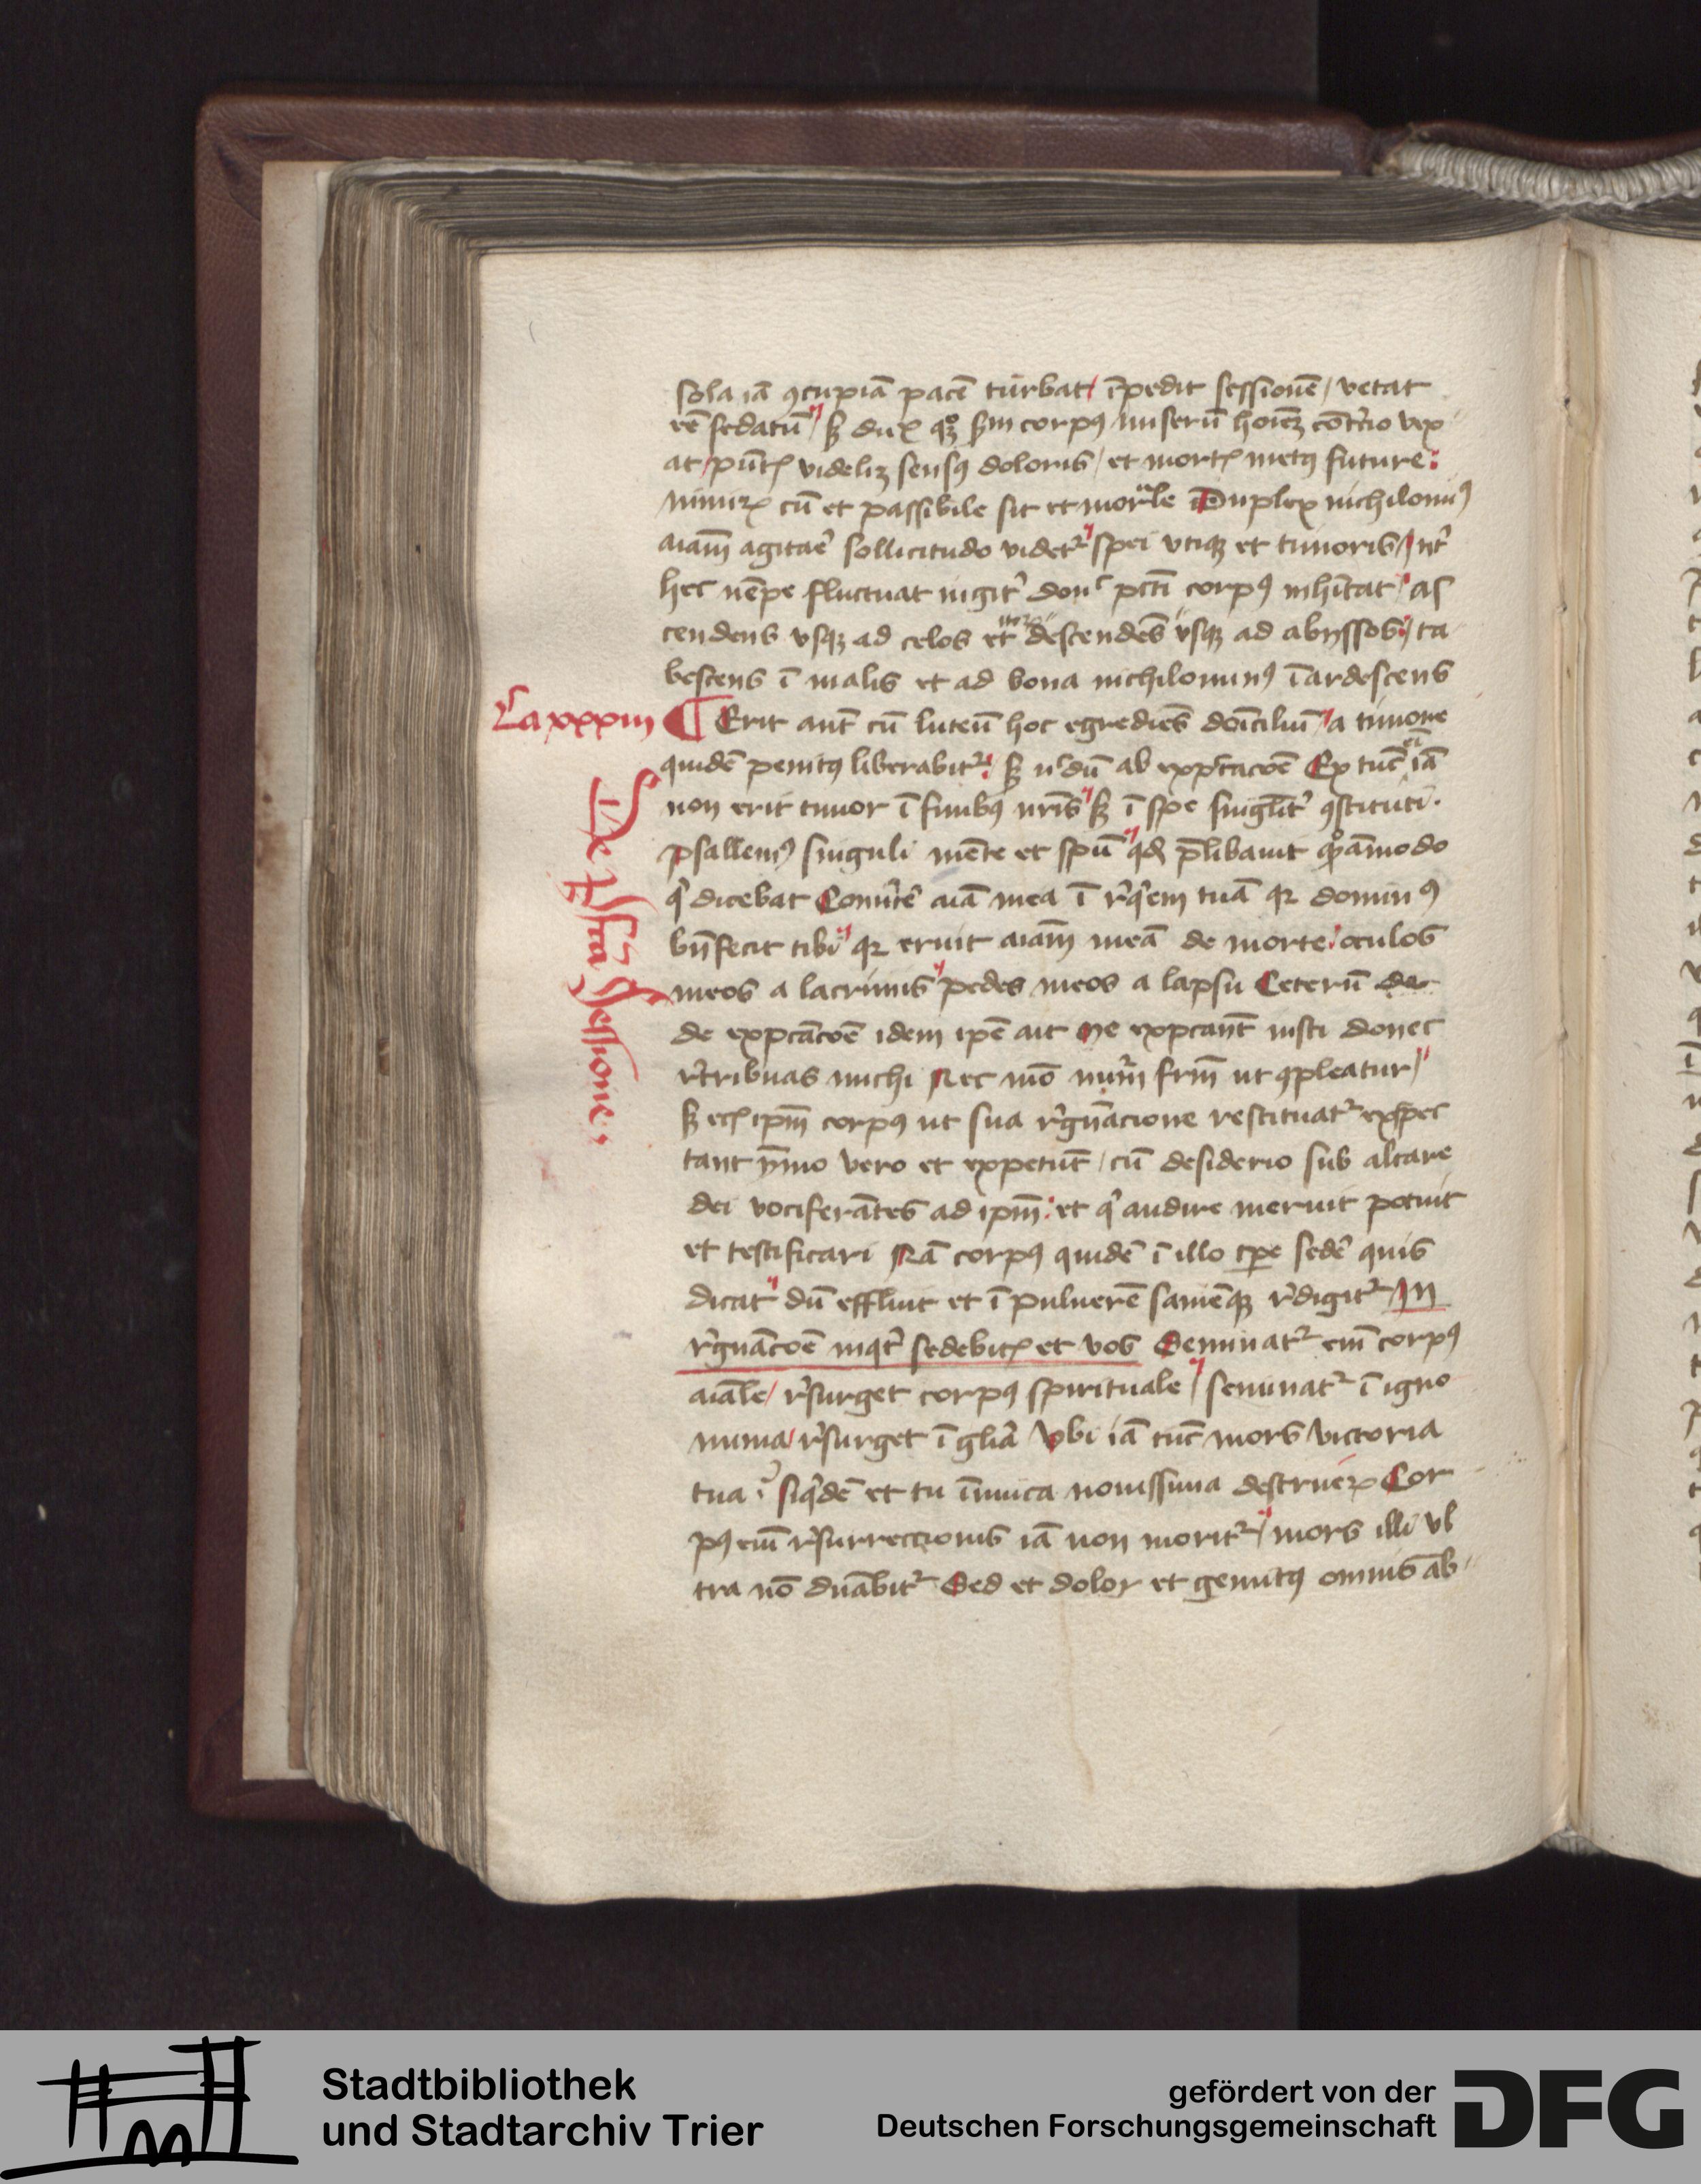 sola iā ꝯcupiā pacē turbat / īpedit sessionē / vetat
eē sedatū / sꝫ duꝝ qꝫ sm corpꝰ miserū hoīeꝫ
at / videliꝫ sensꝰ doloris / et mortꝭ metꝰ future :
cū et passibile sit et morᵃle Duplex nichilomiꝰ
aiam̄ sollicitudo videtᷣ spei vtiqꝫ et timoris / Int̉
hec nēpe fluctuat iugit̉ donᶜ corpꝰ inhītat / as
cendens vsqꝫ ad celos et descendēs vsqꝫ ad abyssos / ta
bescens ī malis et ad bona nichilominꝰ īardescens
Ca xxxiii ¶ Erit aut̄ cū luteū hoc egrediēs doīciliū / a timore
quidē penitꝰ liberabitᷣ : sꝫ nᶜdū ab Ex tūc eī iā
non erit timor ī finibꝰ nr̄is sꝫ ī spe singl̄it̉ ꝯstituti .
psallemꝰ singuli mēte et spū qd̄ p̄libauit
dicebat aīa mea ī r̉qꝰem tuā qꝛ dominꝰ
bn̄fecit tibi qꝛ eruit aiam̄ meā de morte / oculos
meos a lacrimis pedes meos a lapsu Ceterū de
de idem ipē ait Me iusti donec
r̉tribuas michi Nec mō nūm̉ frm̄ ut ꝯpleatur /
sꝫ ipm̄ corpꝰ ut sua restituatᷣ expec
tant ymmo vero et expetūt / cū desiderio sub altare
dei vociferātes ad ipm̄ : et qͥ audire meruit potuit
et testificari Nā corpꝰ quidē ī illo tꝑe sedē quis
dicat dū effluit et ī puluerē saniēqꝫ r̉digitᷣ / In
r̉gn̄ācōē sedebitꝭ et vos Seminatᷣ em̄ corpꝰ
aiāle / r̉surget corpꝰ spirituale / seminatᷣ ī igno
minia / r̉surget ī gl̄ia Vbi iā tūc mors victoria
tua ? siqͥdē et tu īimica nouissima destrueꝝ Cor
pꝰ em̄ r̉surrectionis iā non moritᷣ / mors illi vl
tra nō dn̄abitᷣ Sed et dolor et gemitꝰ omnis ab
De
sessione .
Stadtbibliothek
und Stadtarchiv Trier
gefördert von der
Deutschen Forschungsgemeinschaft
DFG